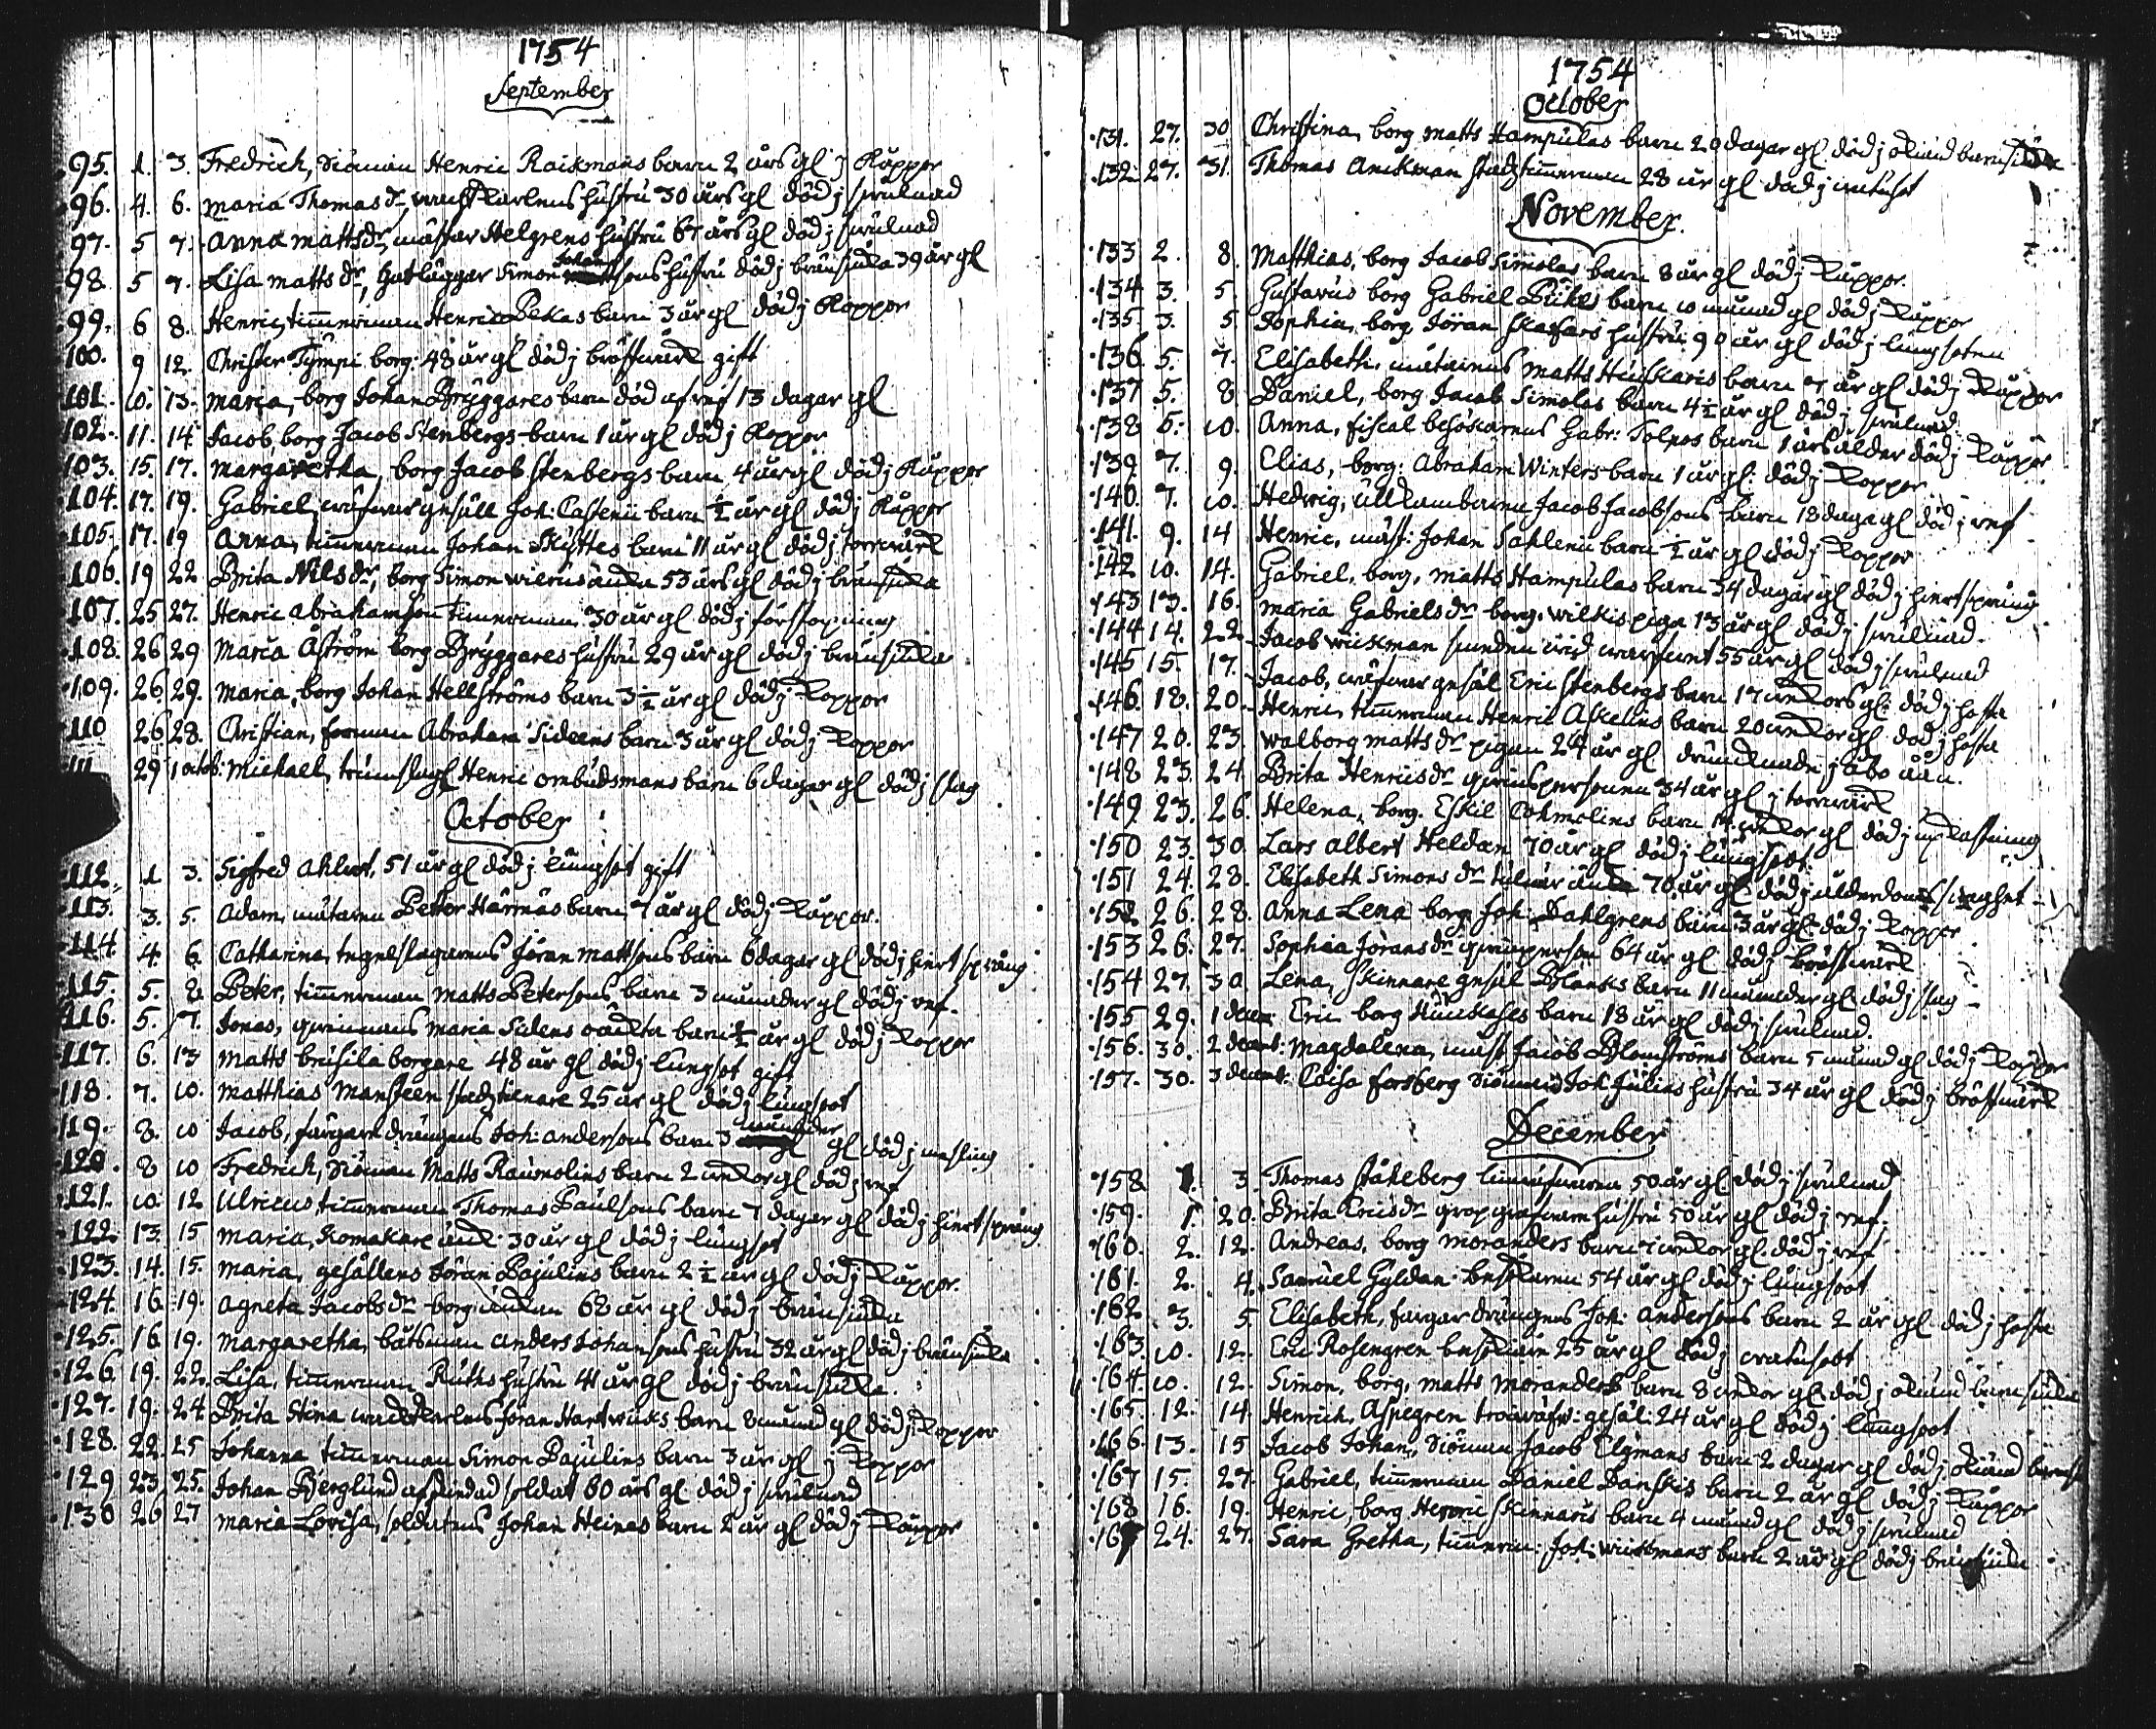 1754
September
95. 1. 3. Fredrich, Siöman Henric Raickmans barn 2 års gl j Kåppor
96. 4. 6. Maria Thomas dr, hustru 30 års gl död j
97. 5 7. Anna Matts dr, mästar Helgrens hustru 67 års gl död j
98. 5 7. Lisa Matts dr, Gatläggar Simon Johansons hustru död j bränsiuka 39 år gl
99. 6 8. Henric, timmerman Henric Pekas barn 3 år gl död j Koppor
100. 9 12. Christer Tympi borg. 48 år gl död j bröstwärk gift
101. 10. 13. Maria, borg Johan Bryggares barn död af ref 13 dagar gl
102. 11. 14 Jacob borg Jacob Stenbergs barn 1 år gl död j Koppor
103. 15. 17. Margaretha, borg Jacob Stenbergs barn 4 år gl död j Kåppor
104. 17. 19. Gabriel, gesäll Joh: Castenii barn ½ år gl död j Kåppor
105. 17. 19 Anna, timmerman Johan Skyttes barn 11 år gl död j torrwärk
106. 19 22 Brita Nils dr, borg Simon änka 53 års gl död j bränsiuka
107. 25 27. Henric Abrahamson timmerman 30 år gl död j förstopning
108. 26 29 Maria Åström borg Bryggares hustru 29 år gl död j bränsiuka
109. 26. 29. Maria, borg Johan Hellströms barn 3½ år gl död j Koppor
110 26 28. Christian, forman Abraham Sideens barn 3 år gl död j Koppor
111 29 1 octob: Michael, trumslag Henric ombudsmans barn 6 dagar gl död j slag
October
112. 1 3. Sigfred Ahlrot, 51 år gl död j lungsot gift
113. 3. 5. Adam, mätaren Petter Härmäs barn 7 år gl död j Kåppor.
114. 4. 6 Catharina, tegelslagarens Jöran Mattsons barn 6 dagar gl död j hiertspräng
115. 5. 8 Peter, timmerman Matts Petersons barn 3 månader gl död j ref.
116. 5. 7. Jonas, Maria Sidens oäckta barn ½ år gl död j Koppor
117. 6. 13 Matts borgare 48 år gl död j lungsot gift
118. 7. 10. Matthias Mansteen stadztienare 25 år gl död j lungsoot
119. 8. 10 Jacob, färgare drängens Joh: Andersons barn 3 månader gl död j mesling
120. 8 10 Fredrich, Siöman Matts Raumolins barn 2 wekor gl död j ref
121. 10 12 Ulricus timmerman Thomas Paulsons barn 7 dagar gl död j hiertspräng
122 13 15 Maria, Komakare änk: 30 år gl död j lungsot
123. 14. 15. Maria, gesällens Jöran Pajulins barn 2½ år gl död j Kåppor.
124. 16 19. Agneta Jacobs dr borg änkan 62 år gl död j bränsiuka
125. 16 19. Margaretha, båtsman Anders Johansons hustru 32 år gl död j bränsiuka
126 19. 22. Lisa, timmerman Ruths hustru 41 år gl död j bränsiuka.
127. 19. 24 Brita Stina Jöran Hartwicks barn 8 månad gl död j Koppor
128. 22. 25 Johanna timmerman Simon Pajulins barn 3 år gl j Koppor
129 23 25. Johan Berglund afskedad soldat 60 års gl död j
130 26 27 Maria Lovisa, soldatens Johan Heinas barn 2 år gl död j Kåppor
1754
October
131. 27. 30 Christina, borg Matts Hampulas barn 20 dagar gl. död j okiänd barnsiuka
132. 27. 31. Thomas Anckman stadztimmerman 28 år gl död j
November.
133 2. 8. Matthias, borg Jacob Simolas barn 8 år gl död j Kåppor.
134 3. 5. Gustavus borg Gabriel barn 10 månad gl död j Kåppor
135. 3. 5 Sophia, borg Jöran Skaffars hustru 90 år gl död j lungsoten
136. 5. 7. Elisabeth, mätarens Matts barn 7 år gl död j Kåppor
137 5. 8 Daniel, borg Jacob Simolas barn 4½ år gl död j
138 5. 10. Anna, fiscal besökarens Gabr: Tolpos barn 1 års ålder död j Kåppor
139 7. 9. Elias, borg: Abraham Winters barn 1 år gl: död j Koppor
140. 7. 10. Hedwig, ullkambaren Jacob Jacobsons barn 18 dagar gl död j ref
141. 9. 14 Henric, mäst: Johan Sahlenii barn ½ år gl död j Koppor
142 10. 14. Gabriel, borg. Matts Hampulas barn 34 dagar gl död j hiertspräng
143 13. 16. Maria Gabriels dr borg. Wilkis piga 13 år gl död j
144 14. 22 Jacob Wickman 55 år gl död j
145 15. 17. Jacob, gesäl Eric Stenbergs barn 17 wekors gl: död j hosta
146. 18. 20. Henric, timmerman Henric Askelins barn 20 wekor gl död j hosta
147 20. 23. Walborg Matts dr pigan 24 år gl drunknade j åbo åån.
148 23. 24. Brita Henrics dr 34 år gl j torrwärk
149. 23. 26. Helena, borg. Eskil Cohmolins barn wekor gl död j
150 23. 30. Lars Albert Heldan 70 år gl död j lungsoot.
151 24. 28. Elisabeth Simons dr änka 70 år gl död j ålderdoms
152 26. 28. Anna Lena borg Joh: Dahlgrens barn 3 år gl: död j Koppor
153 26. 27. Sophia Jörans dr 64 år gl död j bröstwärk
154 27. 30. Lena, Skinnare gesäl Blancks barn 11 månader gl: död j slag
155 29. 1 decem Eric borg barn 18 år gl död j
156. 30. 2 decemb: Magdalena, mäst Jacob Blomströms barn 5 månad gl död j Koppor
157. 30. 3 decemb: Caisa Forsberg Siöman Joh: Julias hustru 34 år gl död j bröstwärk
December
158 1. 3. Thomas Ståkeberg 50 år gl död j
159. 1. 20. Brita Erics dr hustru 50 år gl död j ref.
160. 2. 12. Andreas, borg Moranders barn 7 wekor gl: död j ref
161. 2. 4. Samuel Gyldan besökaren 54 år gl död j lungsoot
162 3. 5. Elisabeth, färgar drängens Joh: Andersons barn 2 år gl död j hosta
163 10. 12. Eric Rosengren besökare 25 år gl död j
164. 10. 12. Simon, borg, Matts Moranders barn 8 wekor gl död j okiänd barnsiuka
165. 12. 14. Henrich, Aspegren gesäl: 24 år gl död j lungsoot
166. 13. 15 Jacob Johan, Siöman Jacob Elgmans barn 2 dagar gl död j okiänd
167 15. 27. Gabriel, timmerman Daniel Danskis barn 2 år gl död j Kåppor
168 16. 19. Henric, borg Henric Skinnaris barn 4 månad gl död j
169 24. 27. Sara Gretha, timmerm: Joh: barn 2 år gl död j bränsiuka